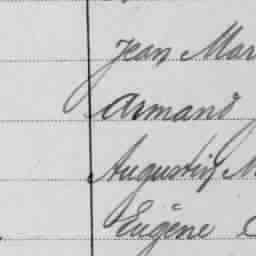 Jean Mar
Armand
Augustin M
Eugène